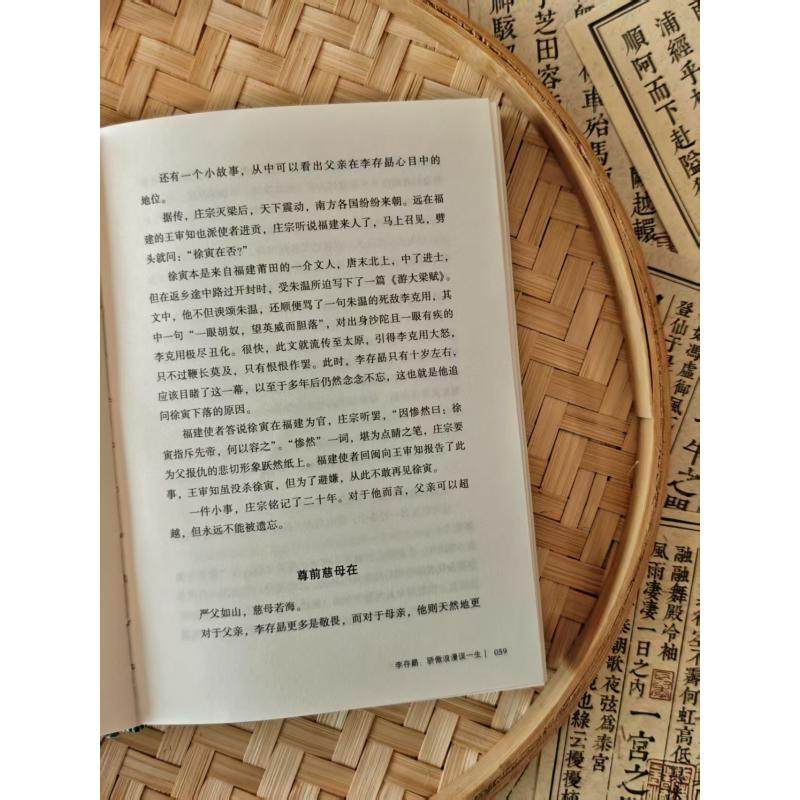 还有一个小故事，从中可以看出父亲在李存勗心目中的
地位。
据传，庄宗灭梁后，天下震动，南方各国纷纷来朝。远在福
建的王审知也派使者进贡，庄宗听说福建来人了，马上召见，劈
头就问：“徐寅在否？”
徐寅本是来自福建莆田的一介文人，唐末北上，中了进士，
但在返乡途中路过开封时，受朱温所迫写下了一篇《游大梁赋》。
文中，他不但谀颂朱温，还顺便骂了一句朱温的死敌李克用，其
中一句“一眼胡奴，望英威而胆落”，对出身沙陀且一眼有疾的
李克用极尽丑化。很快，此文就流传至太原，引得李克用大怒，
只不过鞭长莫及，只有恨恨作罢。此时，李存勗只有十岁左右，
应该目睹了这一幕，以至于多年后仍然念念不忘，这也就是他追
问徐寅下落的原因。
福建使者答说徐寅在福建为官，庄宗听罢，“因惨然曰：徐
寅指斥先帝，何以容之”。“惨然”一词，堪为点睛之笔，庄宗要
为父报仇的悲切形象跃然纸上。福建使者回闽向王审知报告了此
事，王审知虽没杀徐寅，但为了避嫌，从此不敢再见徐寅。
一件小事，庄宗铭记了二十年。对于他而言，父亲可以超
越，但永远不能被遗忘。
尊前慈母在
严父如山，慈母若海。
对于父亲，李存勗更多是敬畏，而对于母亲，他则天然地更
李存勗：骄傲浪漫误一生 | 059
浦經乎
順阿而下赴隘
神駭
芝田容
車殆馬
越轘
登仙于
如馮虛御風
牛之間
融融舞殿冷袖
風雨凄凄一日之内
朝歌夜弦為秦宮
也綠云擾擾
一宮之
何虹高低